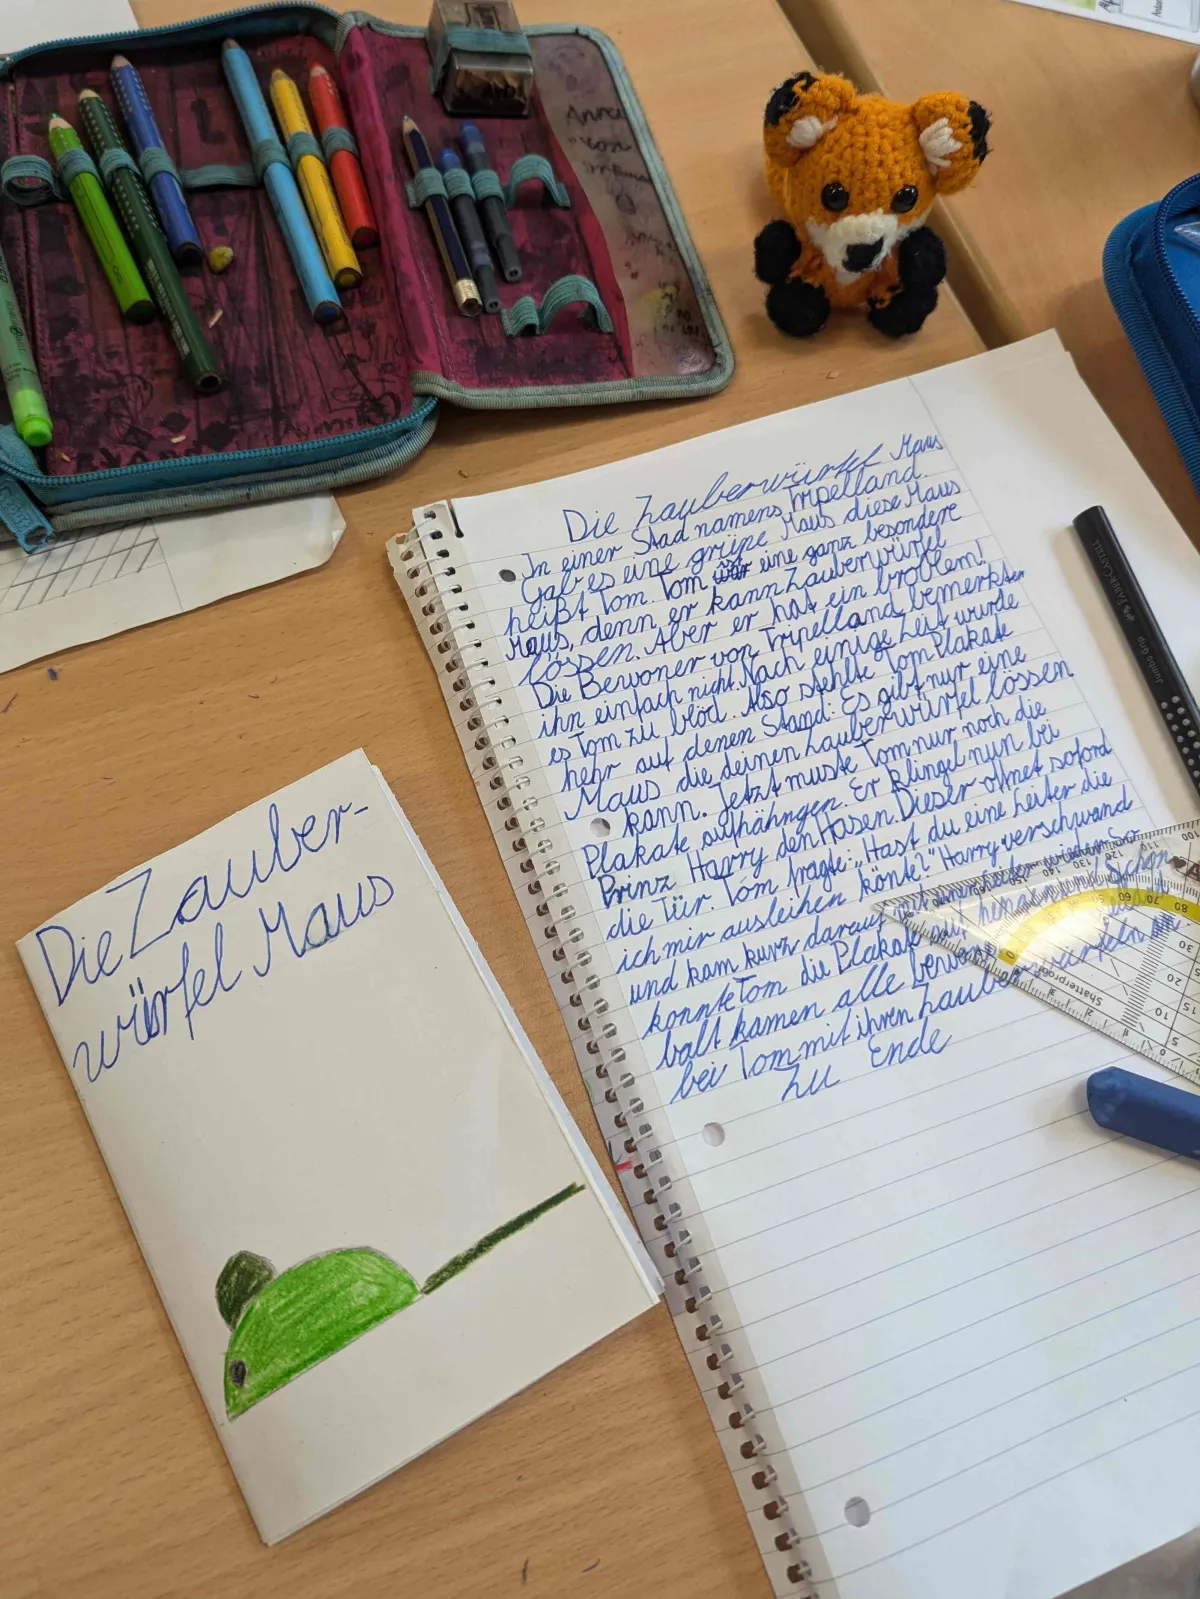 Die Zauberwürfel Maus
In einer Stad namens Tripelland.
Gab es eine grüne Maus diese Maus
heißt Tom. Tom ist eine ganz besondere
Maus, denn er kann Zauberwürfel
lössen. Aber er hat ein broblem!
Die Bewoner von Tripelland bemerkten
ihn einfach nicht. Nach einige Zeit wurde
es Tom zu blöd. Also stehlte Tom Plakate
hehr auf denen Stand: Es gibt nur eine
Maus die deinen Zauberwürfel lössen
kann. Jetzt muste Tom nur noch die
Plakate aufhähngen. Er klingel nun bei
Prinz Harry den Hasen. Dieser öffnet soford
die Tür. Tom fragte: „Hast du eine Leiter die
ich mir ausleihen könte?" Harry verschwand
und kam kurz darauf mit einer Leiter wieder. So
konnte Tom die Plakate auf hengen. Schon
balt kamen alle
bei Tom mit ihren Zauberwürfeln an
Zu Ende
Die Zauber-
würfel Maus
FABER-CASTELL
Jumbo Grip
Shatterproof